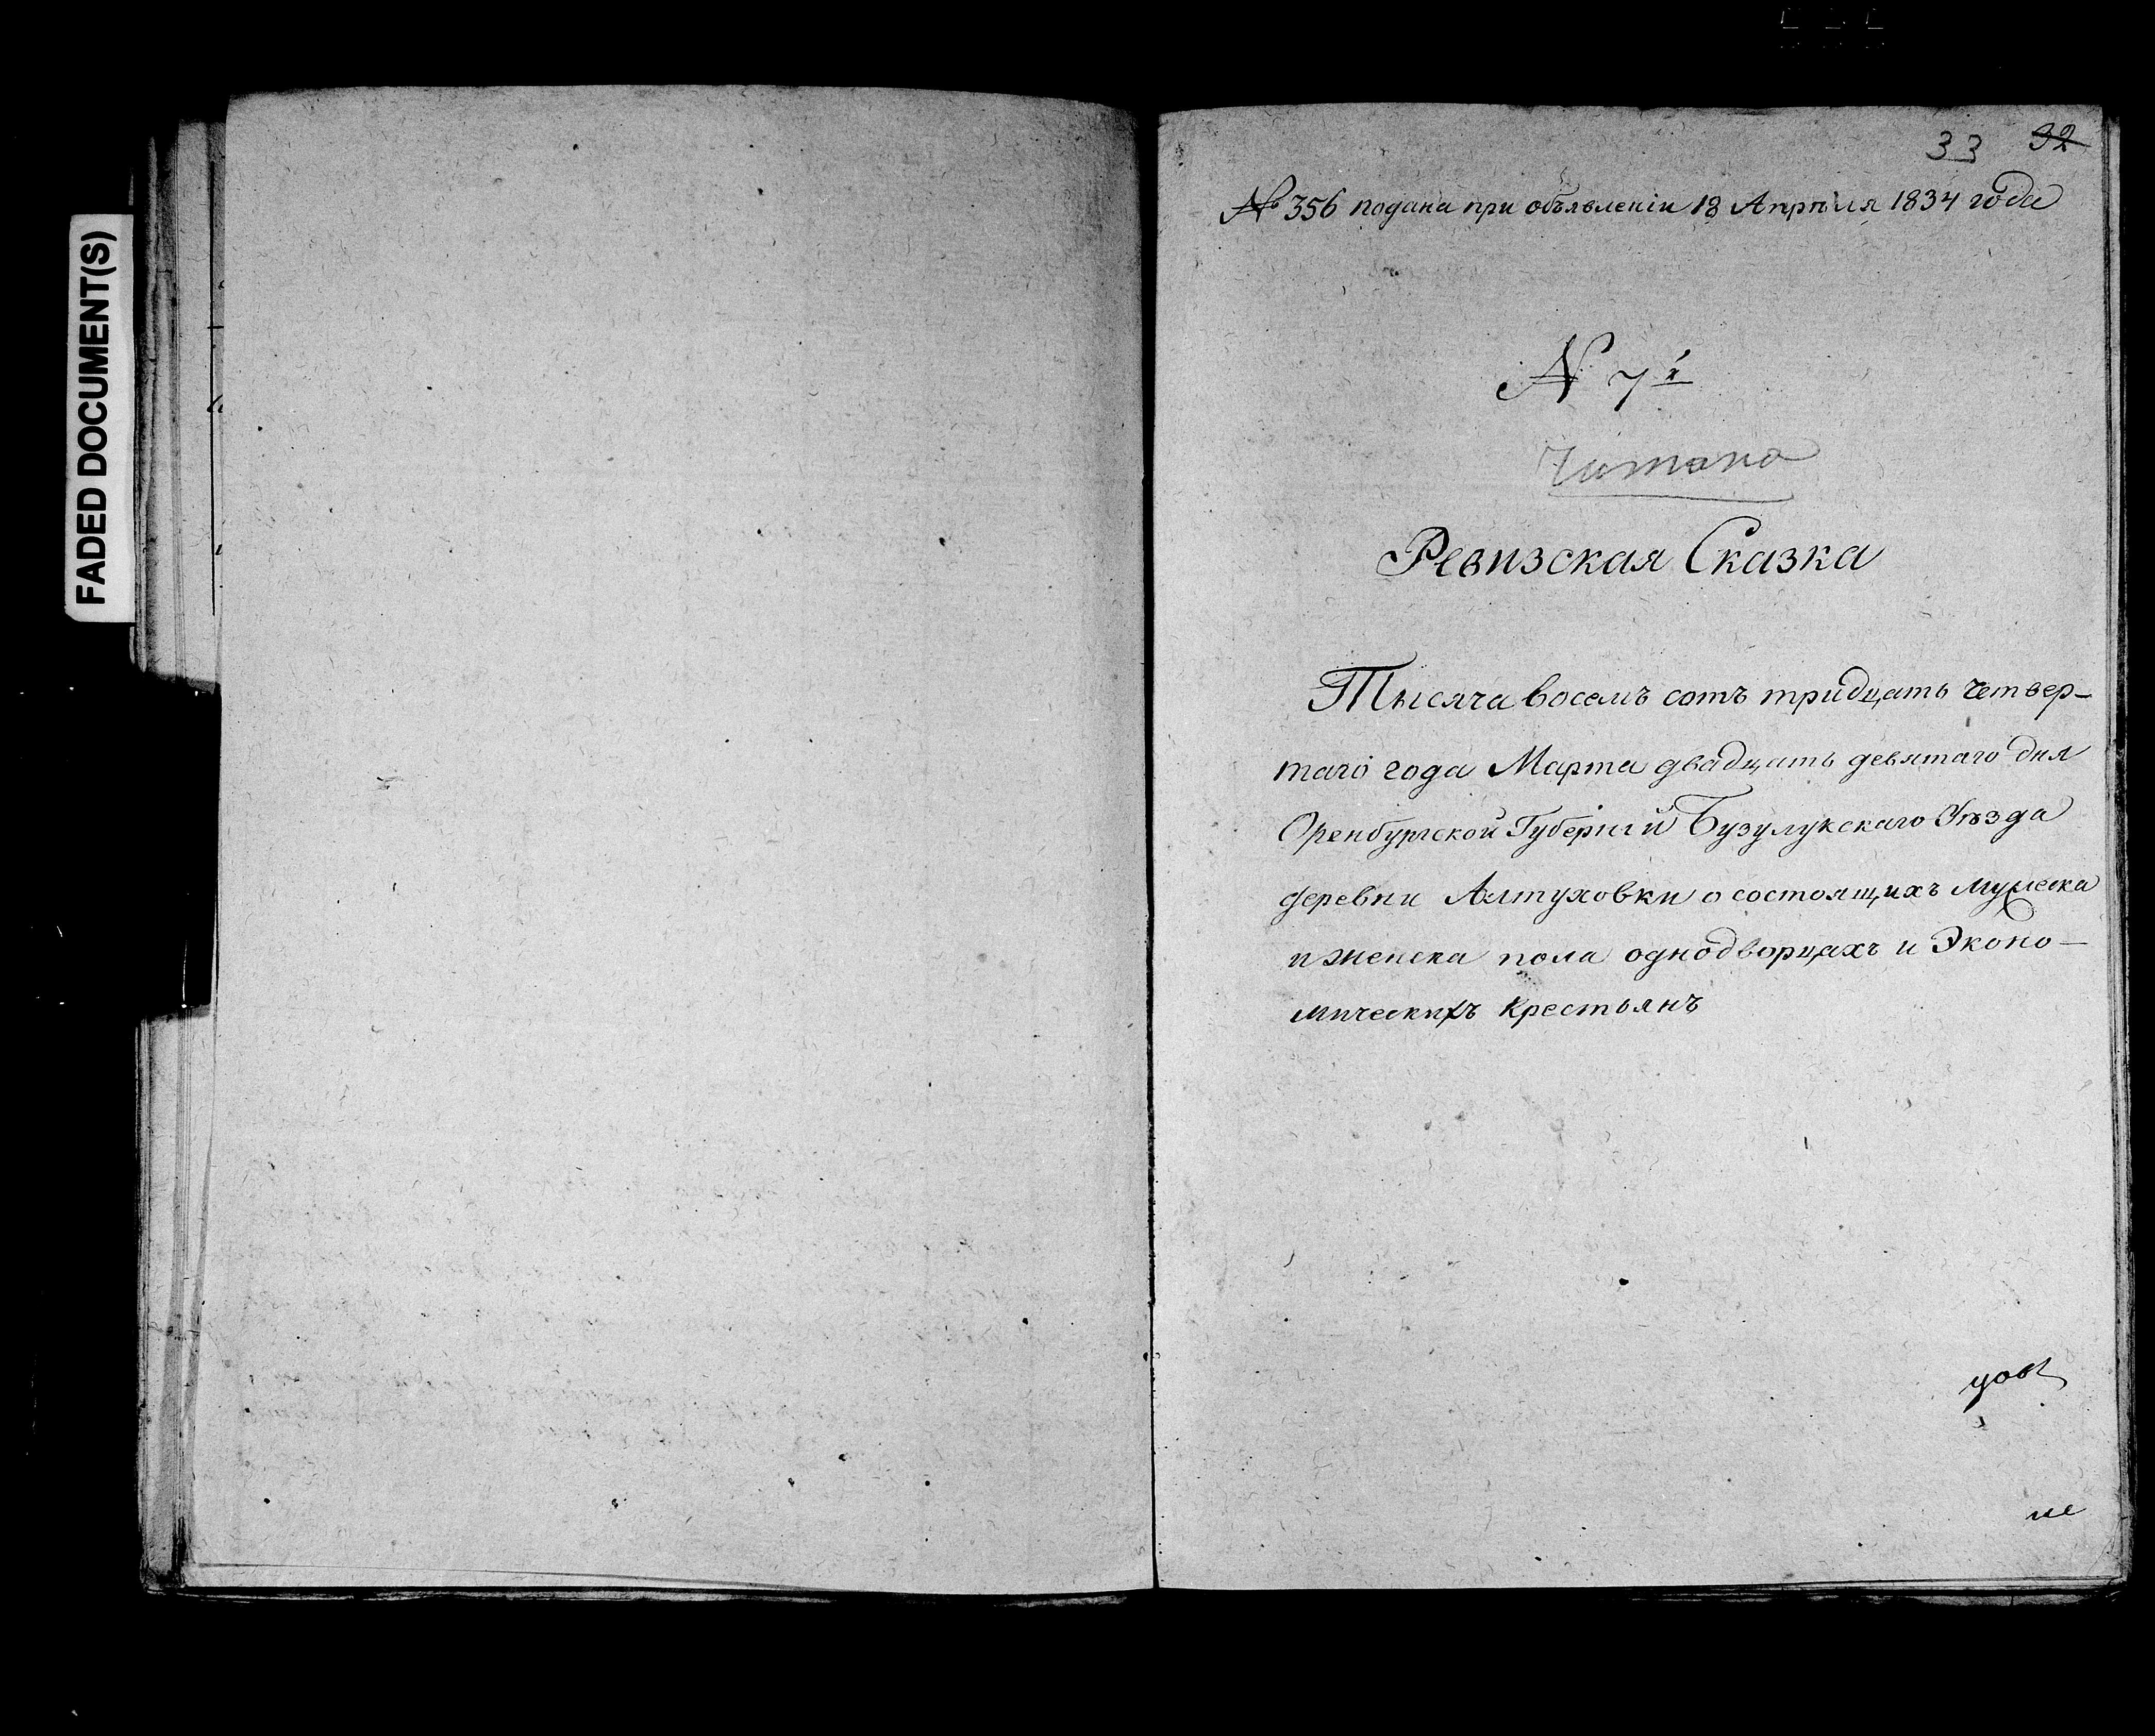 FADED DOCUMENT(S)
33 32
№ 356 подана при объявленіи 18 Апрѣля 1834 года
№ 7й
Читано
Ревизская Сказка
Тысяча восемъ сотъ тридцать четвер-
таго года Марта двадцать девятаго дня
Оренбургской Губерніи Бузулукскаго Уѣзда
деревни Алтуховки о состоящихъ мужеска
и женска пола однодворцахъ и Эконо-
мическихъ крестьянъ